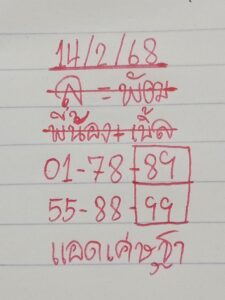 14/2/68
ล = พ้อม
พี่น้อง + เบิ้ล
01-78-89
55-88-99
แอดเศรษฐา